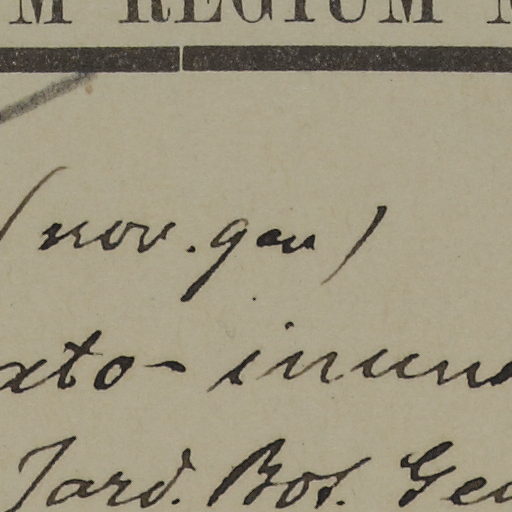 M REGIUM
(nov. gen)
ato - inun
Jard. Bot. Ge